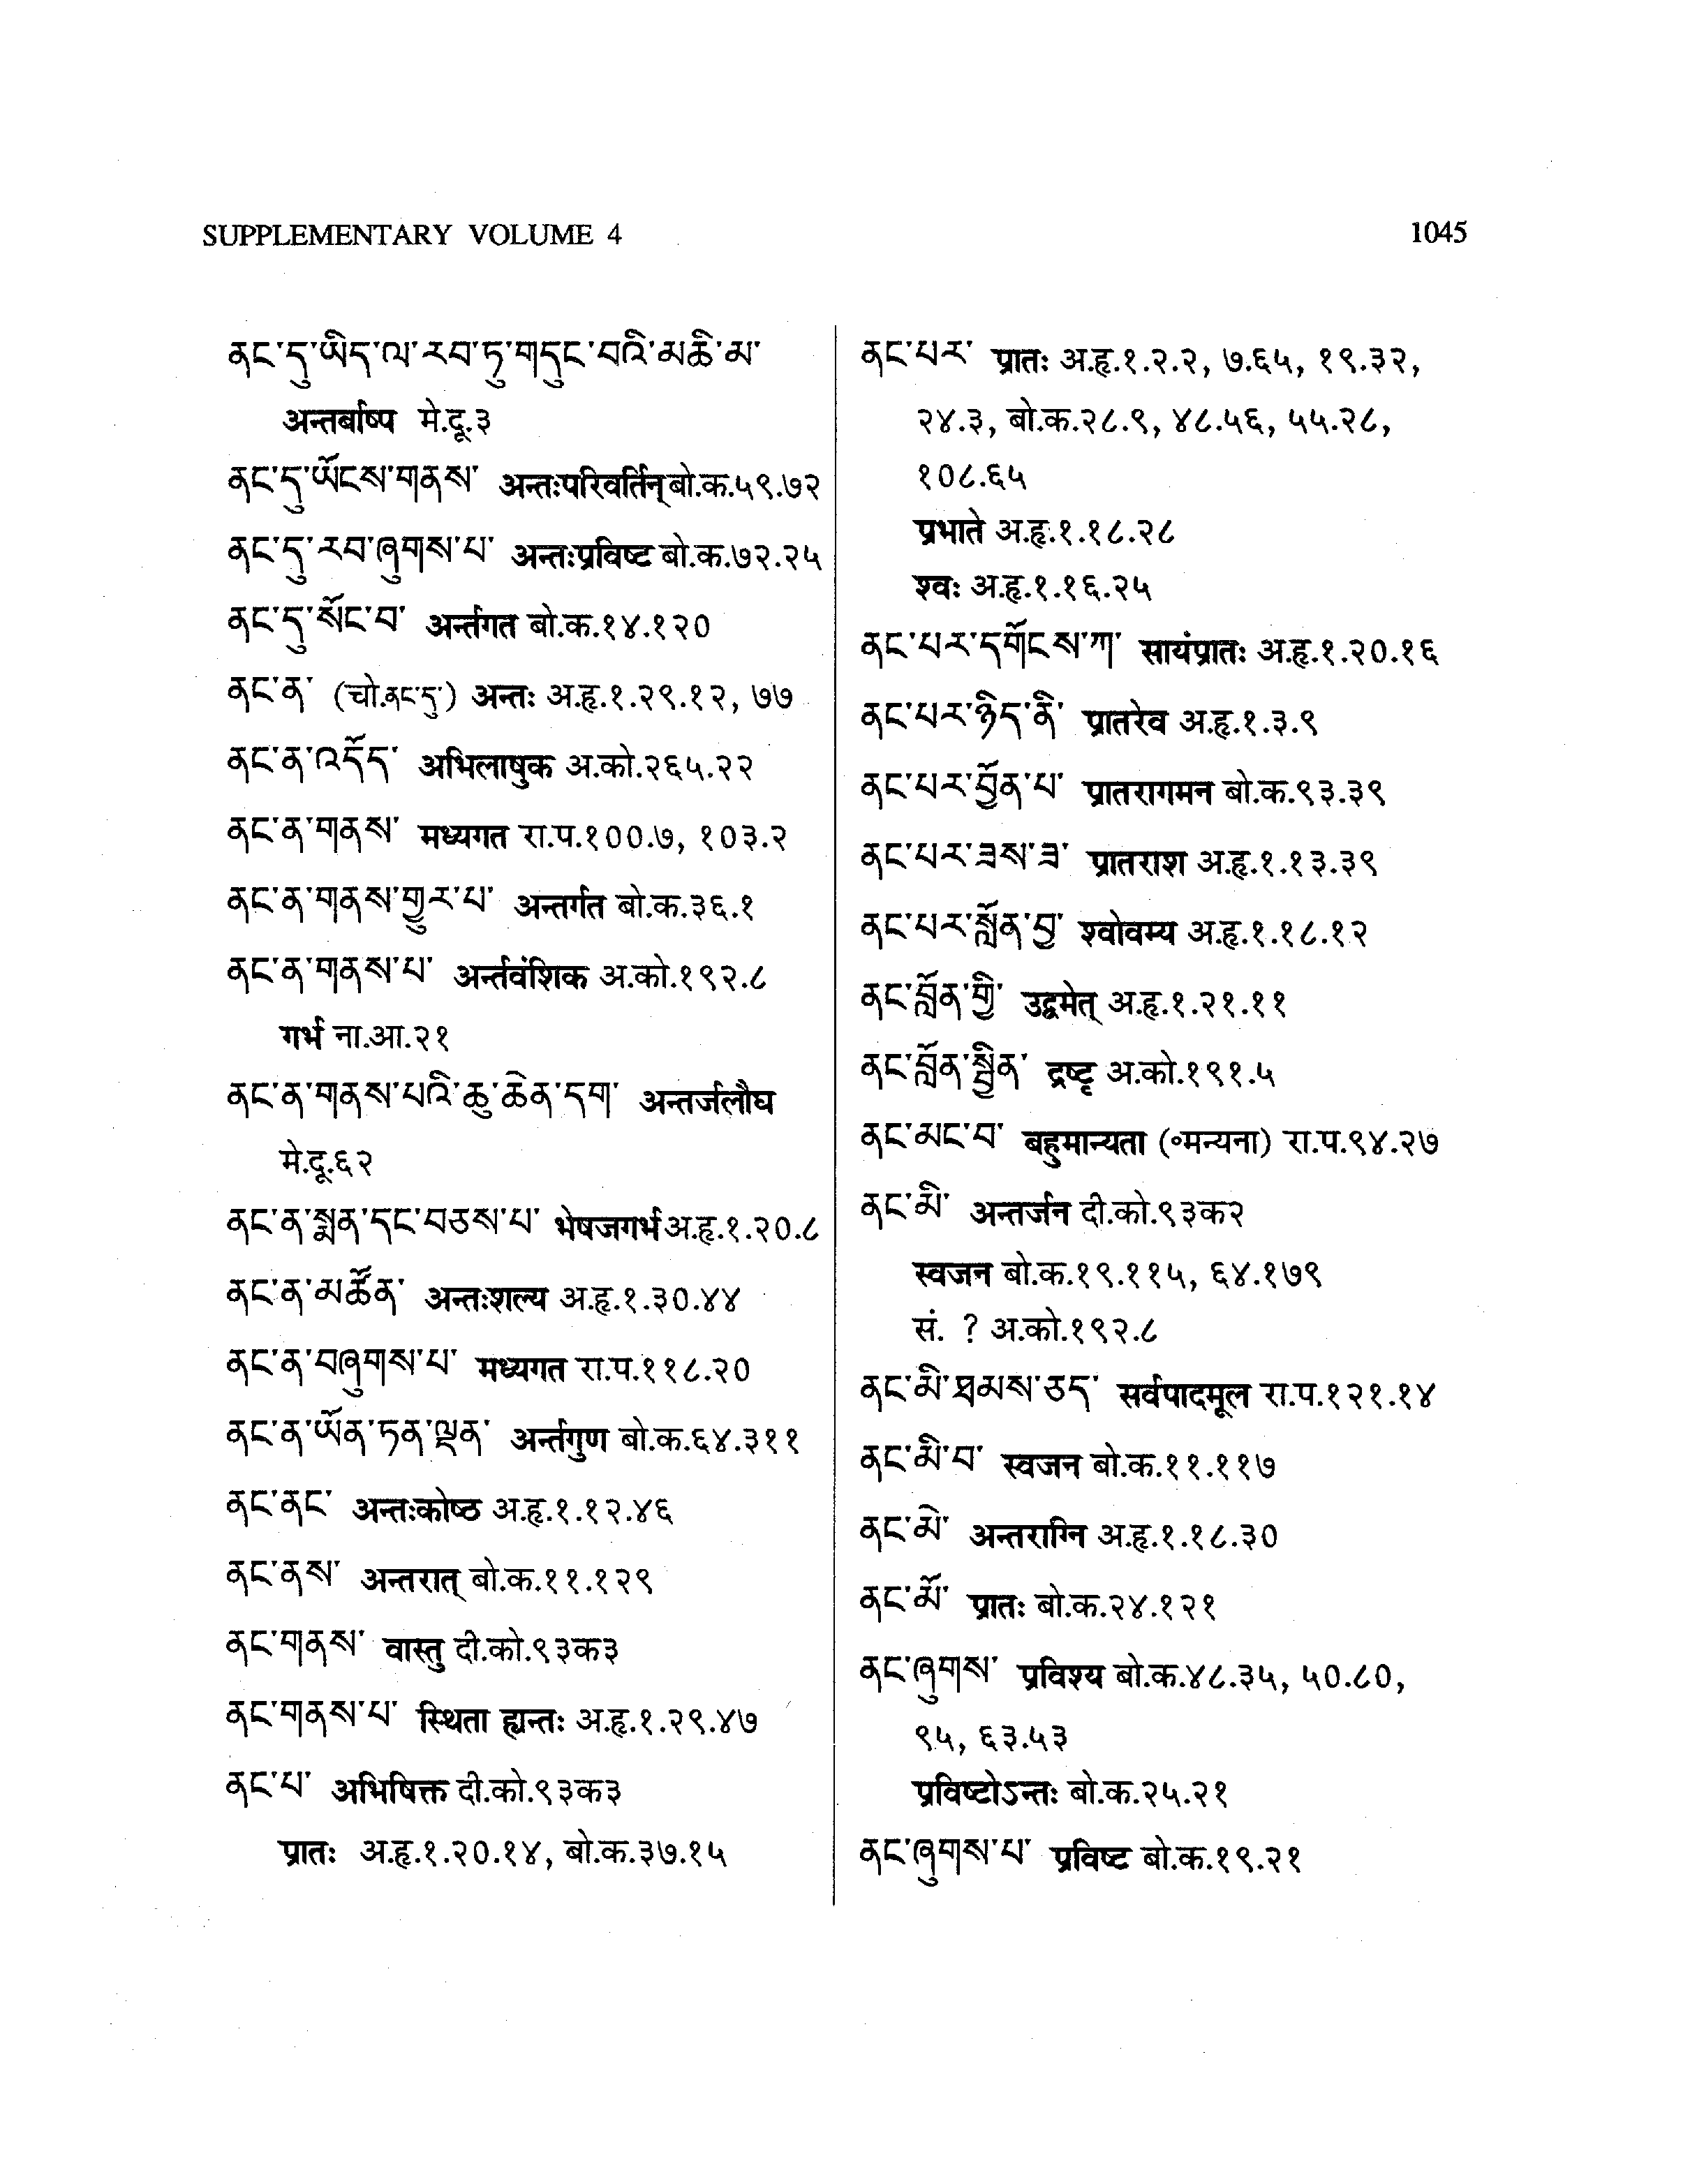 SUPPLEMENTARY VOLUME 4
1045
ནང་དུ་ཡིད་ལ་རབ་ཏུ་གདུང་བའི་མཆི་མ་
अन्तर्बाष्प मे.दू.३
ནང་དུ་ཡོངས་གནས་ अन्तःपरिवर्तिन् बो.क.५९.७२
ནང་དུ་རབ་ཞུགས་པ་ अन्तःप्रविष्ट बो.क.७२.२५
ནང་དུ་སོང་བ་ अर्न्तगत बो.क.१४.१२०
ནང་ན་ (चो.ནང་དུ་) अन्तः अ.हृ.१.२९.१२, ७७
ནང་ན་འདོད་ अभिलाषुक अ.को.२६५.२२
ནང་ན་གནས་ मध्यगत रा.प.१००.७, १०३.२
ནང་ན་གནས་གྱུར་པ་ अन्तर्गत बो.क.३६.१
ནང་ན་གནས་པ་ अर्न्तवंशिक अ.को.१९२.८
गर्भ ना.आ.२१
ནང་ན་གནས་པའི་ཆུ་ཆེན་དག་ अन्तर्जलौघ
मे.दू.६२
ནང་ན་སྨན་དང་བཅས་པ་ भेषजगर्भ अ.हृ.१.२०.८
ནང་ན་མཚོན་ अन्तःशल्य अ.हृ.१.३०.४४
ནང་ན་བཞུགས་པ་ मध्यगत रा.प.११८.२०
ནང་ན་ཡོན་ཏན་ལྡན་ अर्न्तगुण बो.क.६४.३११
ནང་ནང་ अन्तःकोष्ठ अ.हृ.१.१२.४६
ནང་ནས་ अन्तरात् बो.क.११.१२९
ནང་གནས་ वास्तु दी.को.९३क३
ནང་གནས་པ་ स्थिता ह्यन्तः अ.हृ.१.२९.४७
ནང་པ་ अभिषिक्त दी.को.९३क३
प्रातः अ.हृ.१.२०.१४, बो.क.३७.१५
ནང་པར་ प्रातः अ.हृ.१.२.२, ७.६५, १९.३२,
२४.३, बो.क.२८.९, ४८.५६, ५५.२८,
१०८.६५
प्रभाते अ.हृ.१.१८.२८
श्वः अ.हृ.१.१६.२५
ནང་པར་དགོངས་ཀ་ सायंप्रातः अ.हृ.१.२०.१६
ནང་པར་ཉིད་ནི་ प्रातरेव अ.हृ.१.३.९
ནང་པར་བྱོན་པ་ प्रातरागमन बो.क.९३.३९
ནང་པར་ཟས་ཟ་ प्रातराश अ.हृ.१.१३.३९
ནང་པར་སློན་བྱ་ श्वोवम्य अ.हृ.१.१८.१२
ནང་བློན་གྱི་ उद्वमेत् अ.हृ.१.२१.११
ནང་བློན་སྦྱིན་ द्रष्टृ अ.को.१९१.५
ནང་མང་བ་ बहुमान्यता (॰मन्यना) रा.प.९४.२७
ནང་མི་ अन्तर्जन दी.को.९३क२
स्वजन बो.क.१९.११५, ६४.१७९
सं. ? अ.को.१९२.८
ནང་མི་ཐམས་ཅད་ सर्वपादमूल रा.प.१२१.१४
ནང་མི་བ་ स्वजन बो.क.११.११७
ནང་མེ་ अन्तराग्नि अ.हृ.१.१८.३०
ནང་མོ་ प्रातः बो.क.२४.१२१
ནང་ཞུགས་ प्रविश्य बो.क.४८.३५, ५०.८०,
९५, ६३.५३
प्रविष्टोऽन्तः बो.क.२५.२१
ནང་ཞུགས་པ་ प्रविष्ट बो.क.१९.२१